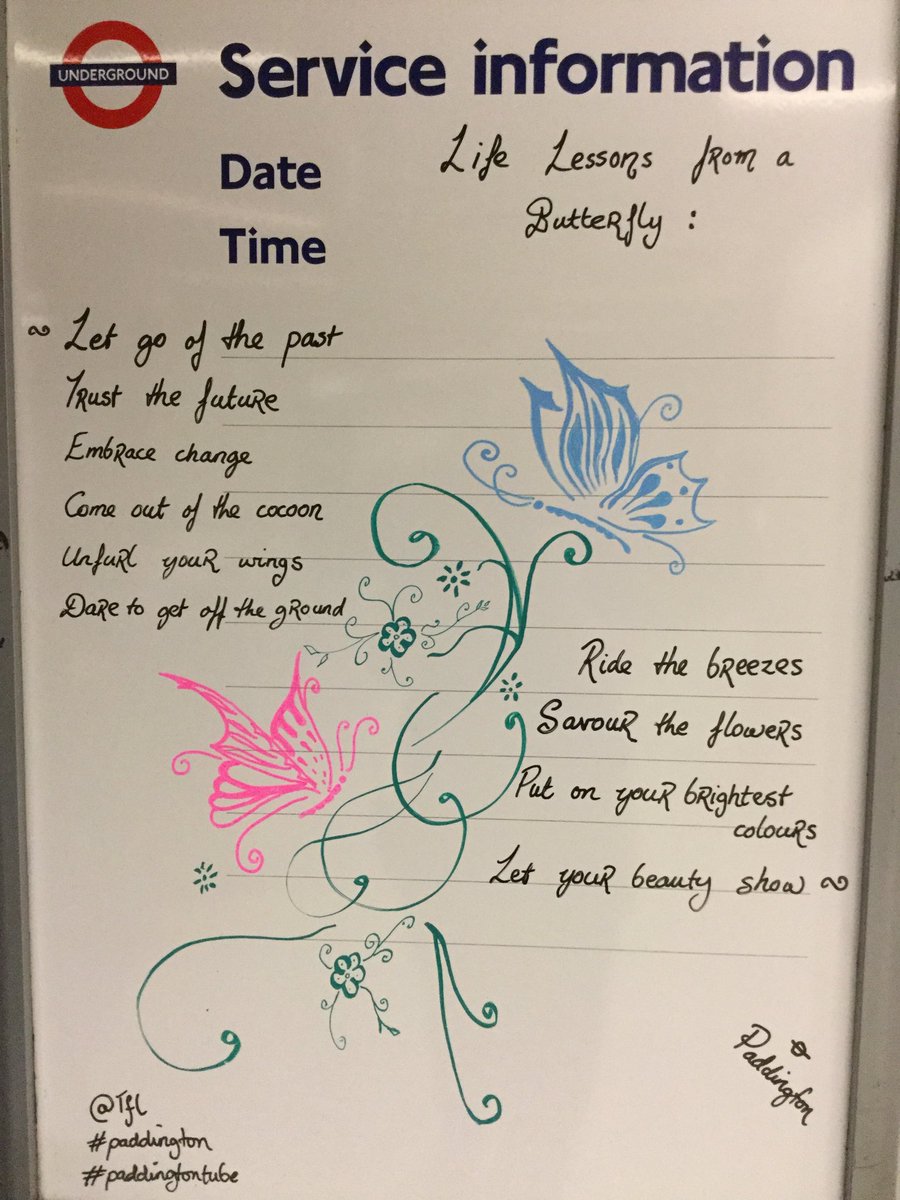 UNDERGROUND
Service information
Date
Time
Life Lessons from a
Butterfly :
~ Let go of the past
Trust the future
Embrace change
Come out of the cocoon
Unfurl your wings
Dare to get off the ground
Ride the breezes
Savour the flowers
Put on your brightest
colours
Let your beauty show ~
Paddington
@Tfl
#paddington
#paddingtontube